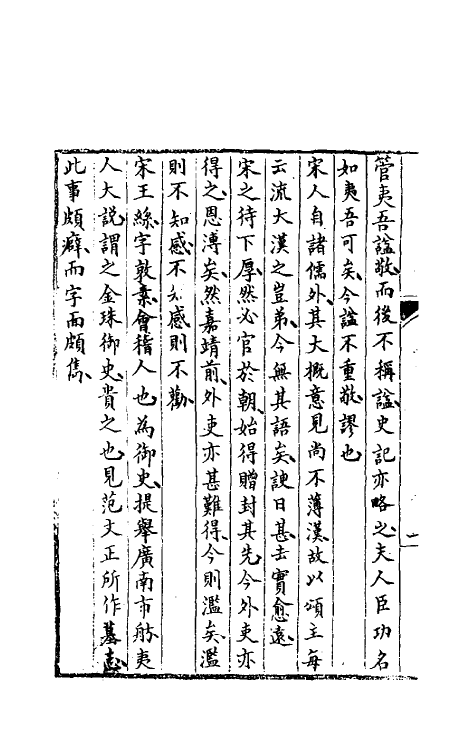 管夷吾諡敬而後不稱諡史記亦略之夫人臣功名
如夷吾可矣今諡不重敬謬也
宋人自諸儒外其大概意見尚不薄漢故以頌主每
云流大漢之豈弟今無其語矣諛日甚去實愈遠
宋之待下厚然必官於朝始得贈封其先今外吏亦
得之恩溥矣然嘉靖前外吏亦甚難得今則濫矣濫
則不知感不知感則不勸
宋王絲字敦素會稽人也為御史提舉廣南市舶夷
人大說謂之金珠御史貴之也見范文正所作墓志
此事頗癖而字面頗雋